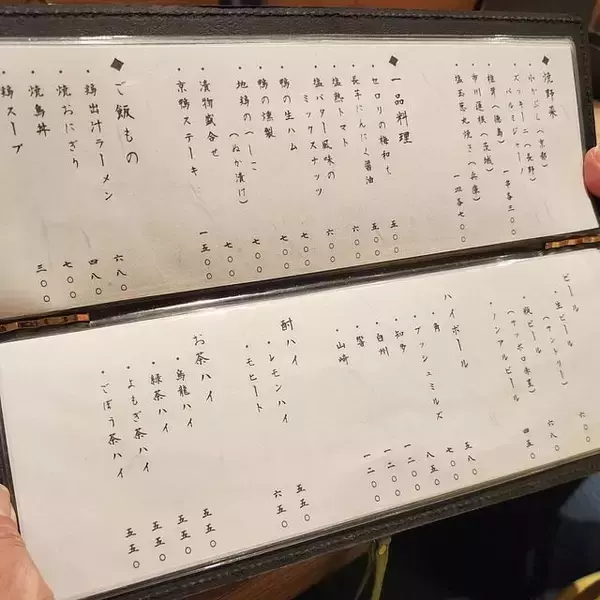 ◆ 焼野菜
・ズッキーニ（長野）
パルミジャーノ
・椎茸（徳島）
・市川蓮根（茨城）
・塩玉葱丸焼き（兵庫）
一四五七〇〇
◆ 一品料理
・セロリの梅和え 五〇〇
・長芋にんにく醤油 五〇〇
・塩熟トマト 六〇〇
・塩バター風味の
ミックスナッツ 六〇〇
・鴨の生ハム 七〇〇
・鴨の燻製 七〇〇
（ぬか漬け） 七〇〇
・漬物盛合せ 七〇〇
・京鴨ステーキ 一五〇〇
◆ ご飯もの
・鶏出汁ラーメン 六八〇
・焼おにぎり 四八〇
・焼鳥丼 七〇〇
・鶏スープ 三〇〇
ビール
・生ビール 六〇〇
（サントリー）
・瓶ビール 六八〇
（サッポロ赤星）
・ノンアルビール 四五〇
ハイボール
・角 五八〇
・ブッシュミルズ 七〇〇
・知多 八五〇
・白州 一二〇〇
・響 一二〇〇
・山崎 一二〇〇
酎ハイ
・レモンハイ 五五〇
・モヒート 六五〇
お茶ハイ
・烏龍ハイ 五五〇
・緑茶ハイ 五五〇
・よもぎ茶ハイ 五五〇
・ごぼう茶ハイ 五五〇